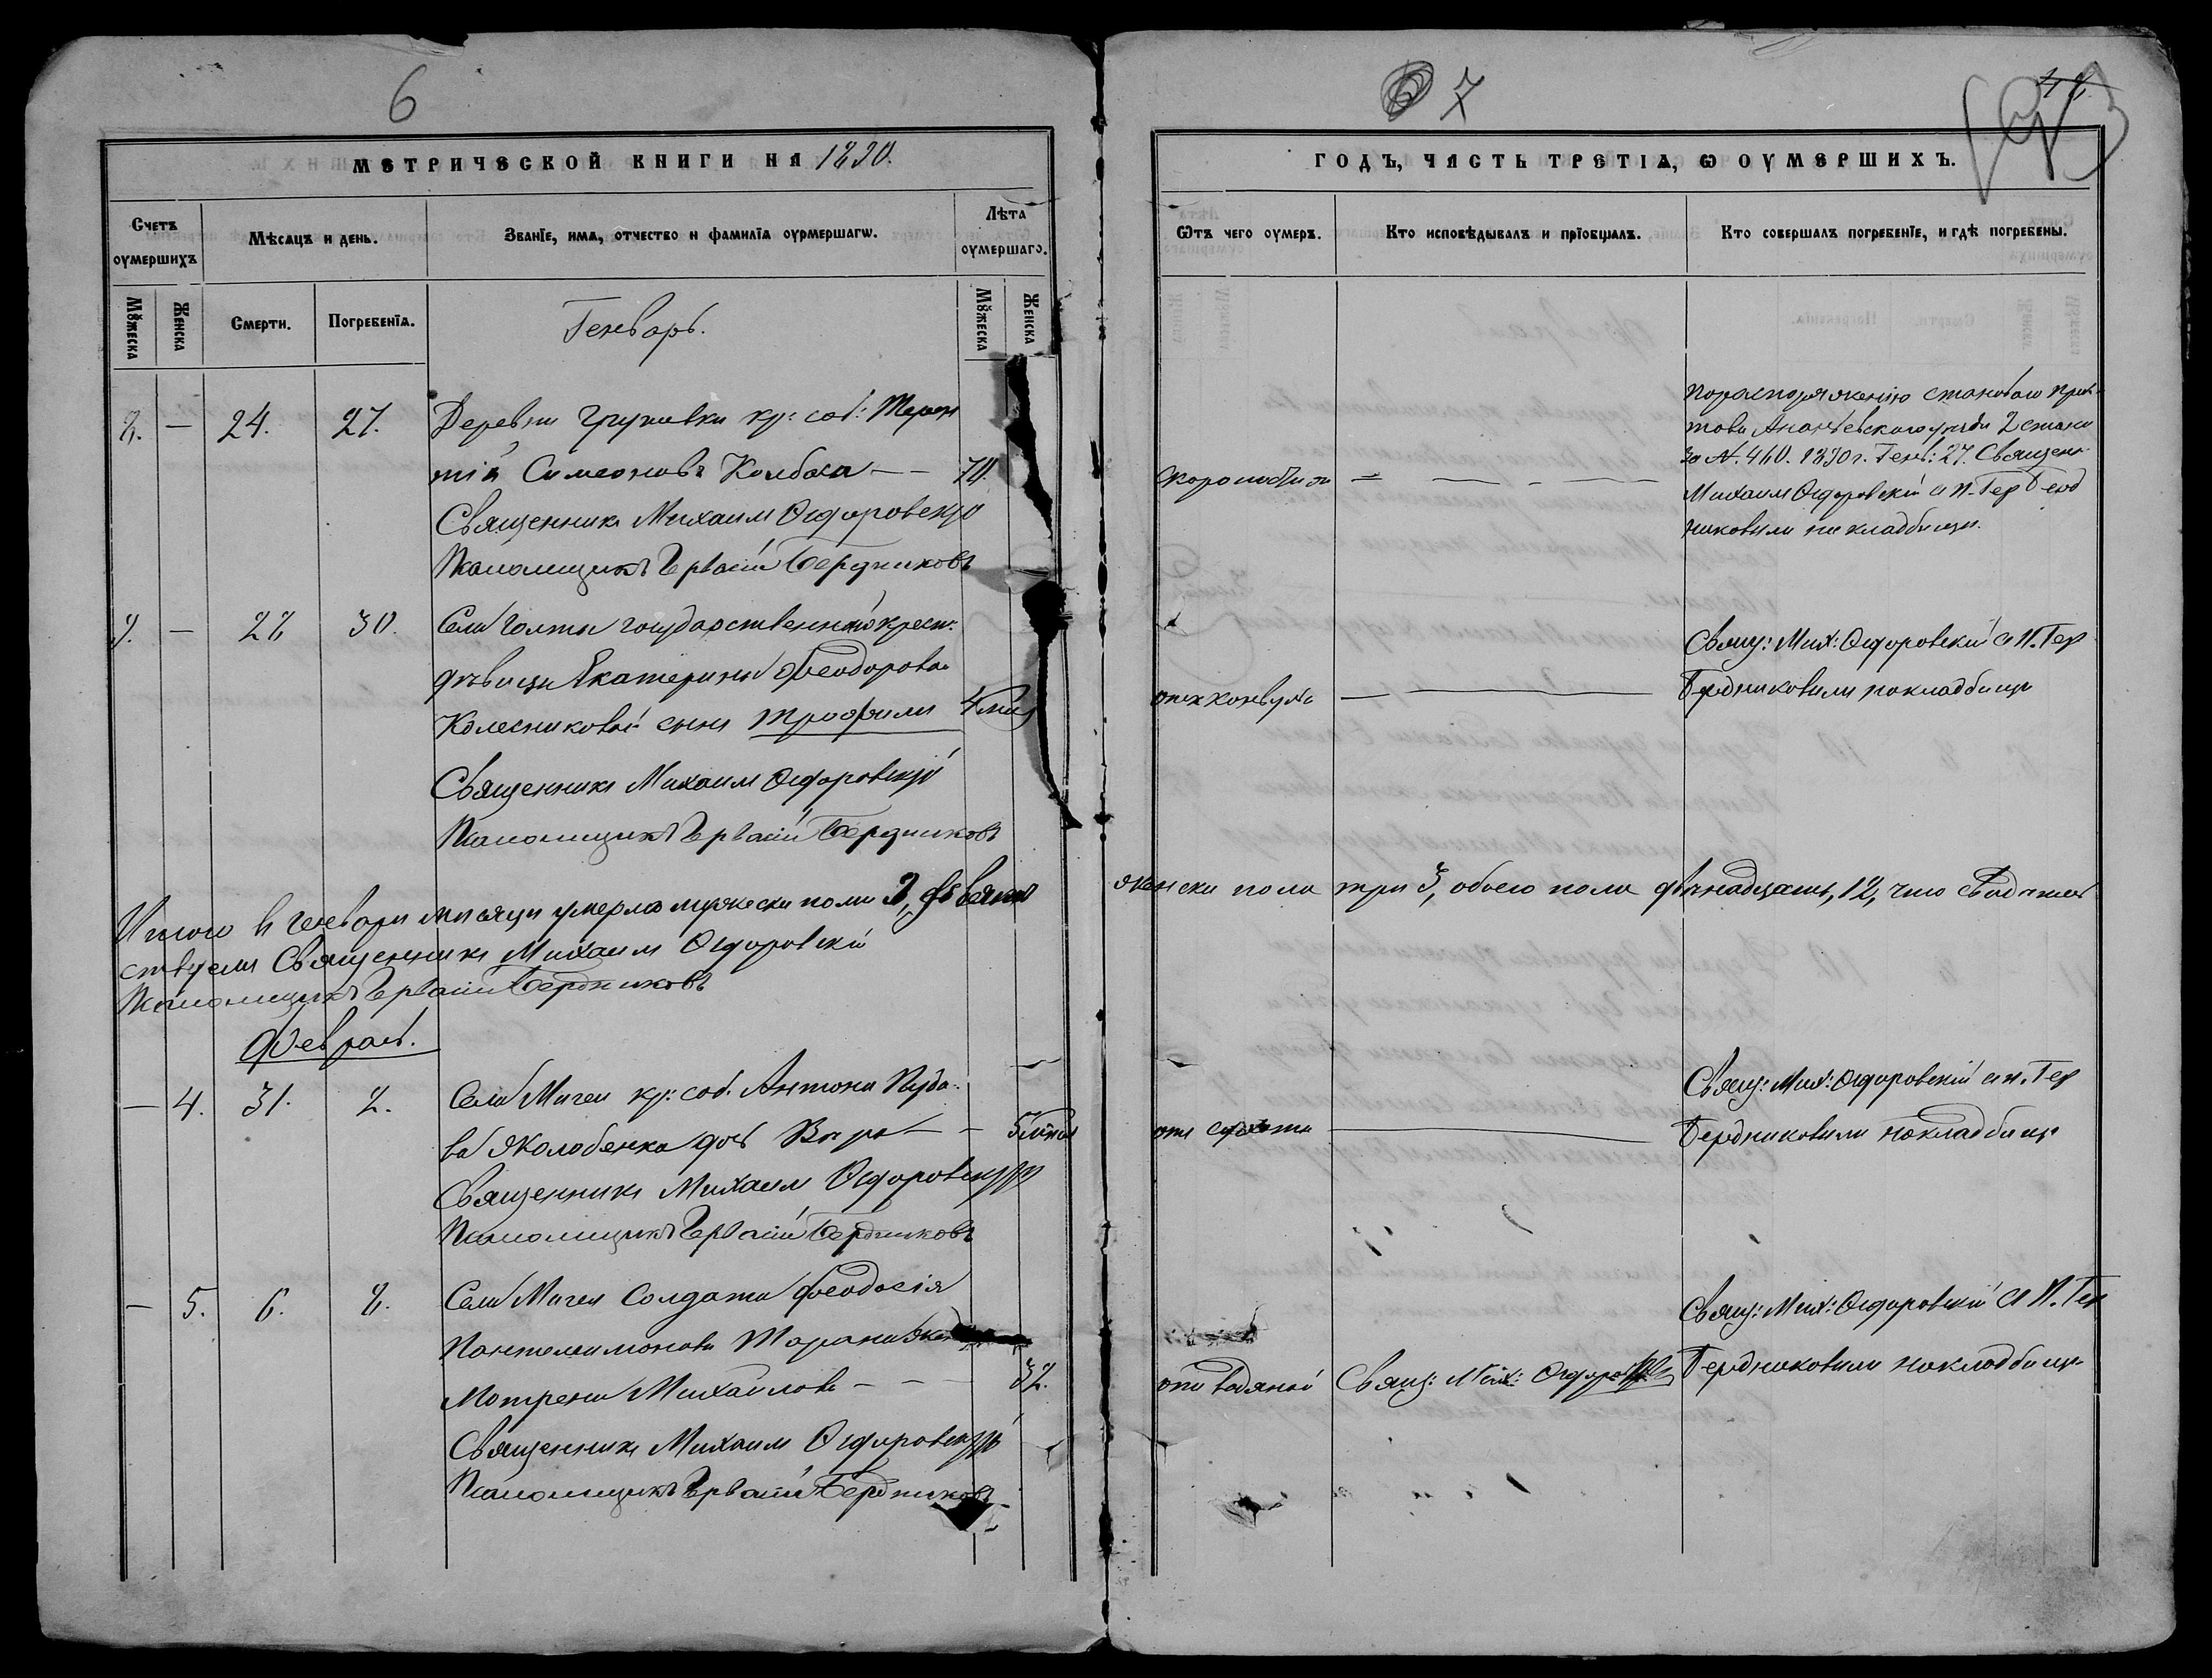 6
МЕТРИЧЕСКОЙ КНИГИ НА 1890.
Счетъ оумершихъ
Мѣсяцъ и день.
Званїе, имя, отчество и фамилїя оумершагѡ.
Лѣта оумершаго.
Мꙋжеска
Женска
Смерти.
Погребенїя.
Мꙋжеска
Женска
Генварь.
8. — 24. 27. Деревни Грушевки кр: соб: Терен
тій Симеоновъ Колбаса — — 70.
Священникъ Михаилъ Ѳедоровскій
Псаломщикъ Гервасій Бердниковъ
9. — 28 30. Села Голты государственной крест:
дѣвицы Екатерины Феодоровой
Колесниковой сынъ Трофимъ 4 мѣс
Священникъ Михаилъ Ѳедоровскій
Псаломщикъ Гервасій Бердниковъ
Итого въ Генварѣ мѣсяцѣ умерло мужеска пола 9, девять
ствуемъ Священникъ Михаилъ Ѳедоровскій
Псаломщикъ Гервасій Бердниковъ
Февраль.
— 4. 31. 2. Села Мигеи кр: соб. Антона
дочь Вѣра — — 5 лѣтъ
Священникъ Михаилъ Ѳедоровскій
Псаломщикъ Гервасій Бердниковъ
— 5. 6. 8. Села Мигеи Солдата Феодосія
Пантелеимонова жена
Мотрена Михайлова — — — 32.
Священникъ Михаилъ Ѳедоровскій
Псаломщикъ Гервасій Бердниковъ
7
ГОДЪ, ЧАСТЬ ТРЕТІЯ, Ѡ ОУМЕРШИХЪ.
Ѿтъ чего оумеръ.
Кто исповѣдывалъ и прїобщалъ.
Кто совершалъ погребенїе, и гдѣ погребены.
По распоряженію становаго прис
това Ананьевскаго уѣзда 2 стана
за №. 460. 1890 г. Генв: 27. Священ
скоропостижно — Михаилъ Ѳедоровскій с п. Гер Берд
никовымъ на кладбищѣ.
Свящ: Мих: Ѳедоровскій с п. Гер
отъ конвульс — Бердниковымъ на кладбищѣ
женска пола три 3, обоего пола двѣнадцать, 12, что свидѣтель
Свящ: Мих: Ѳедоровскій с п. Гер
отъ — Бердниковымъ на кладбищѣ
Свящ: Мих: Ѳедоровскій с п. Гер
отъ водяной Свящ: Мих: Ѳедоровскій Бердниковымъ на кладбищѣ